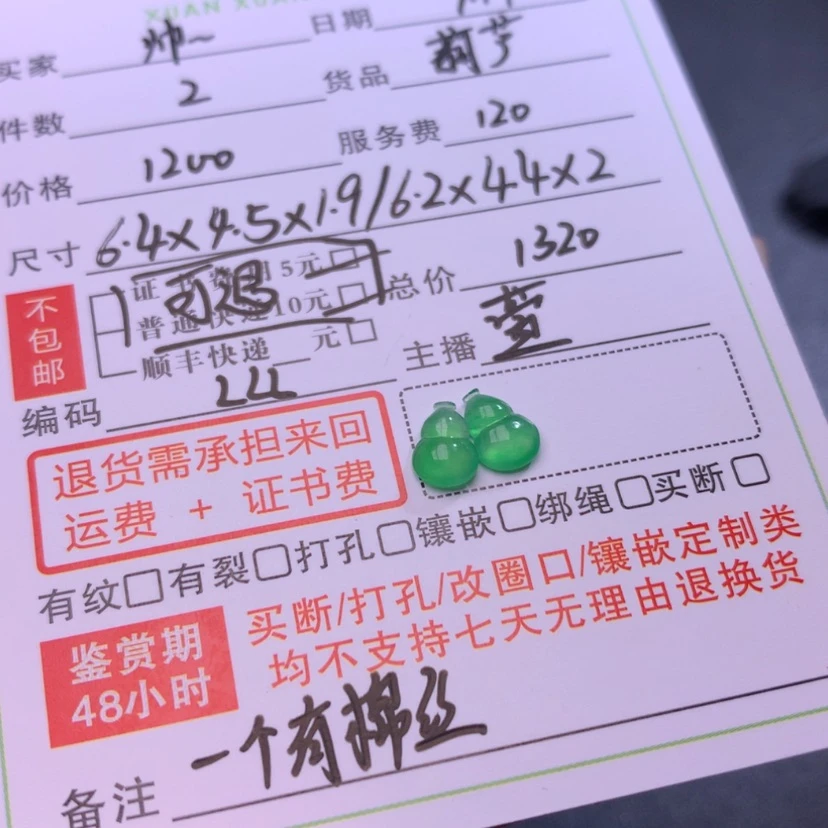 XUAN XUAN
买家 帅~ 日期
件数 2 货品 葫芦
价格 1200 服务费 120
尺寸 6.4×4.5×1.9/6.2×44×2
不包邮
证书费用5元□
可退
普通快递10元□
顺丰快递 元□
总价 1320
主播
编码 LLL
退货需承担来回
运费 + 证书费
有纹□有裂□打孔□镶嵌□绑绳□买断□
鉴赏期
48小时
买断/打孔/改圈口/镶嵌定制类
均不支持七天无理由退换货
备注 一个有棉丝